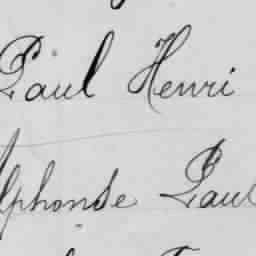 Paul Henri
Alphonse Paul